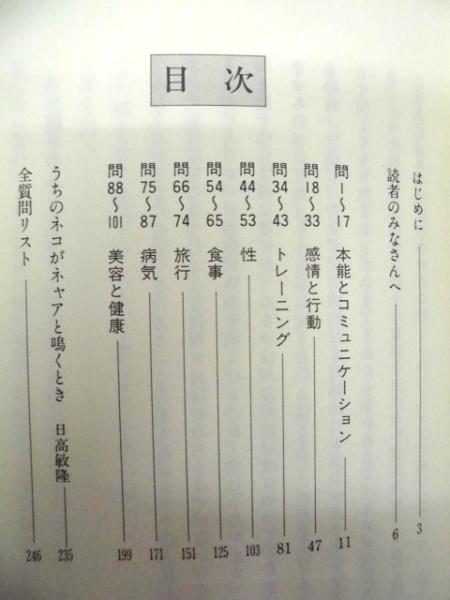 目次
はじめに 3
読者のみなさんへ 6
問1〜17 本能とコミュニケーション 11
問18〜33 感情と行動 47
問34〜43 トレーニング 81
問44〜53 性 103
問54〜65 食事 125
問66〜74 旅行 151
問75〜87 病気 171
問88〜101 美容と健康 199
うちのネコがネャアと鳴くとき 日高敏隆 235
全質問リスト 246